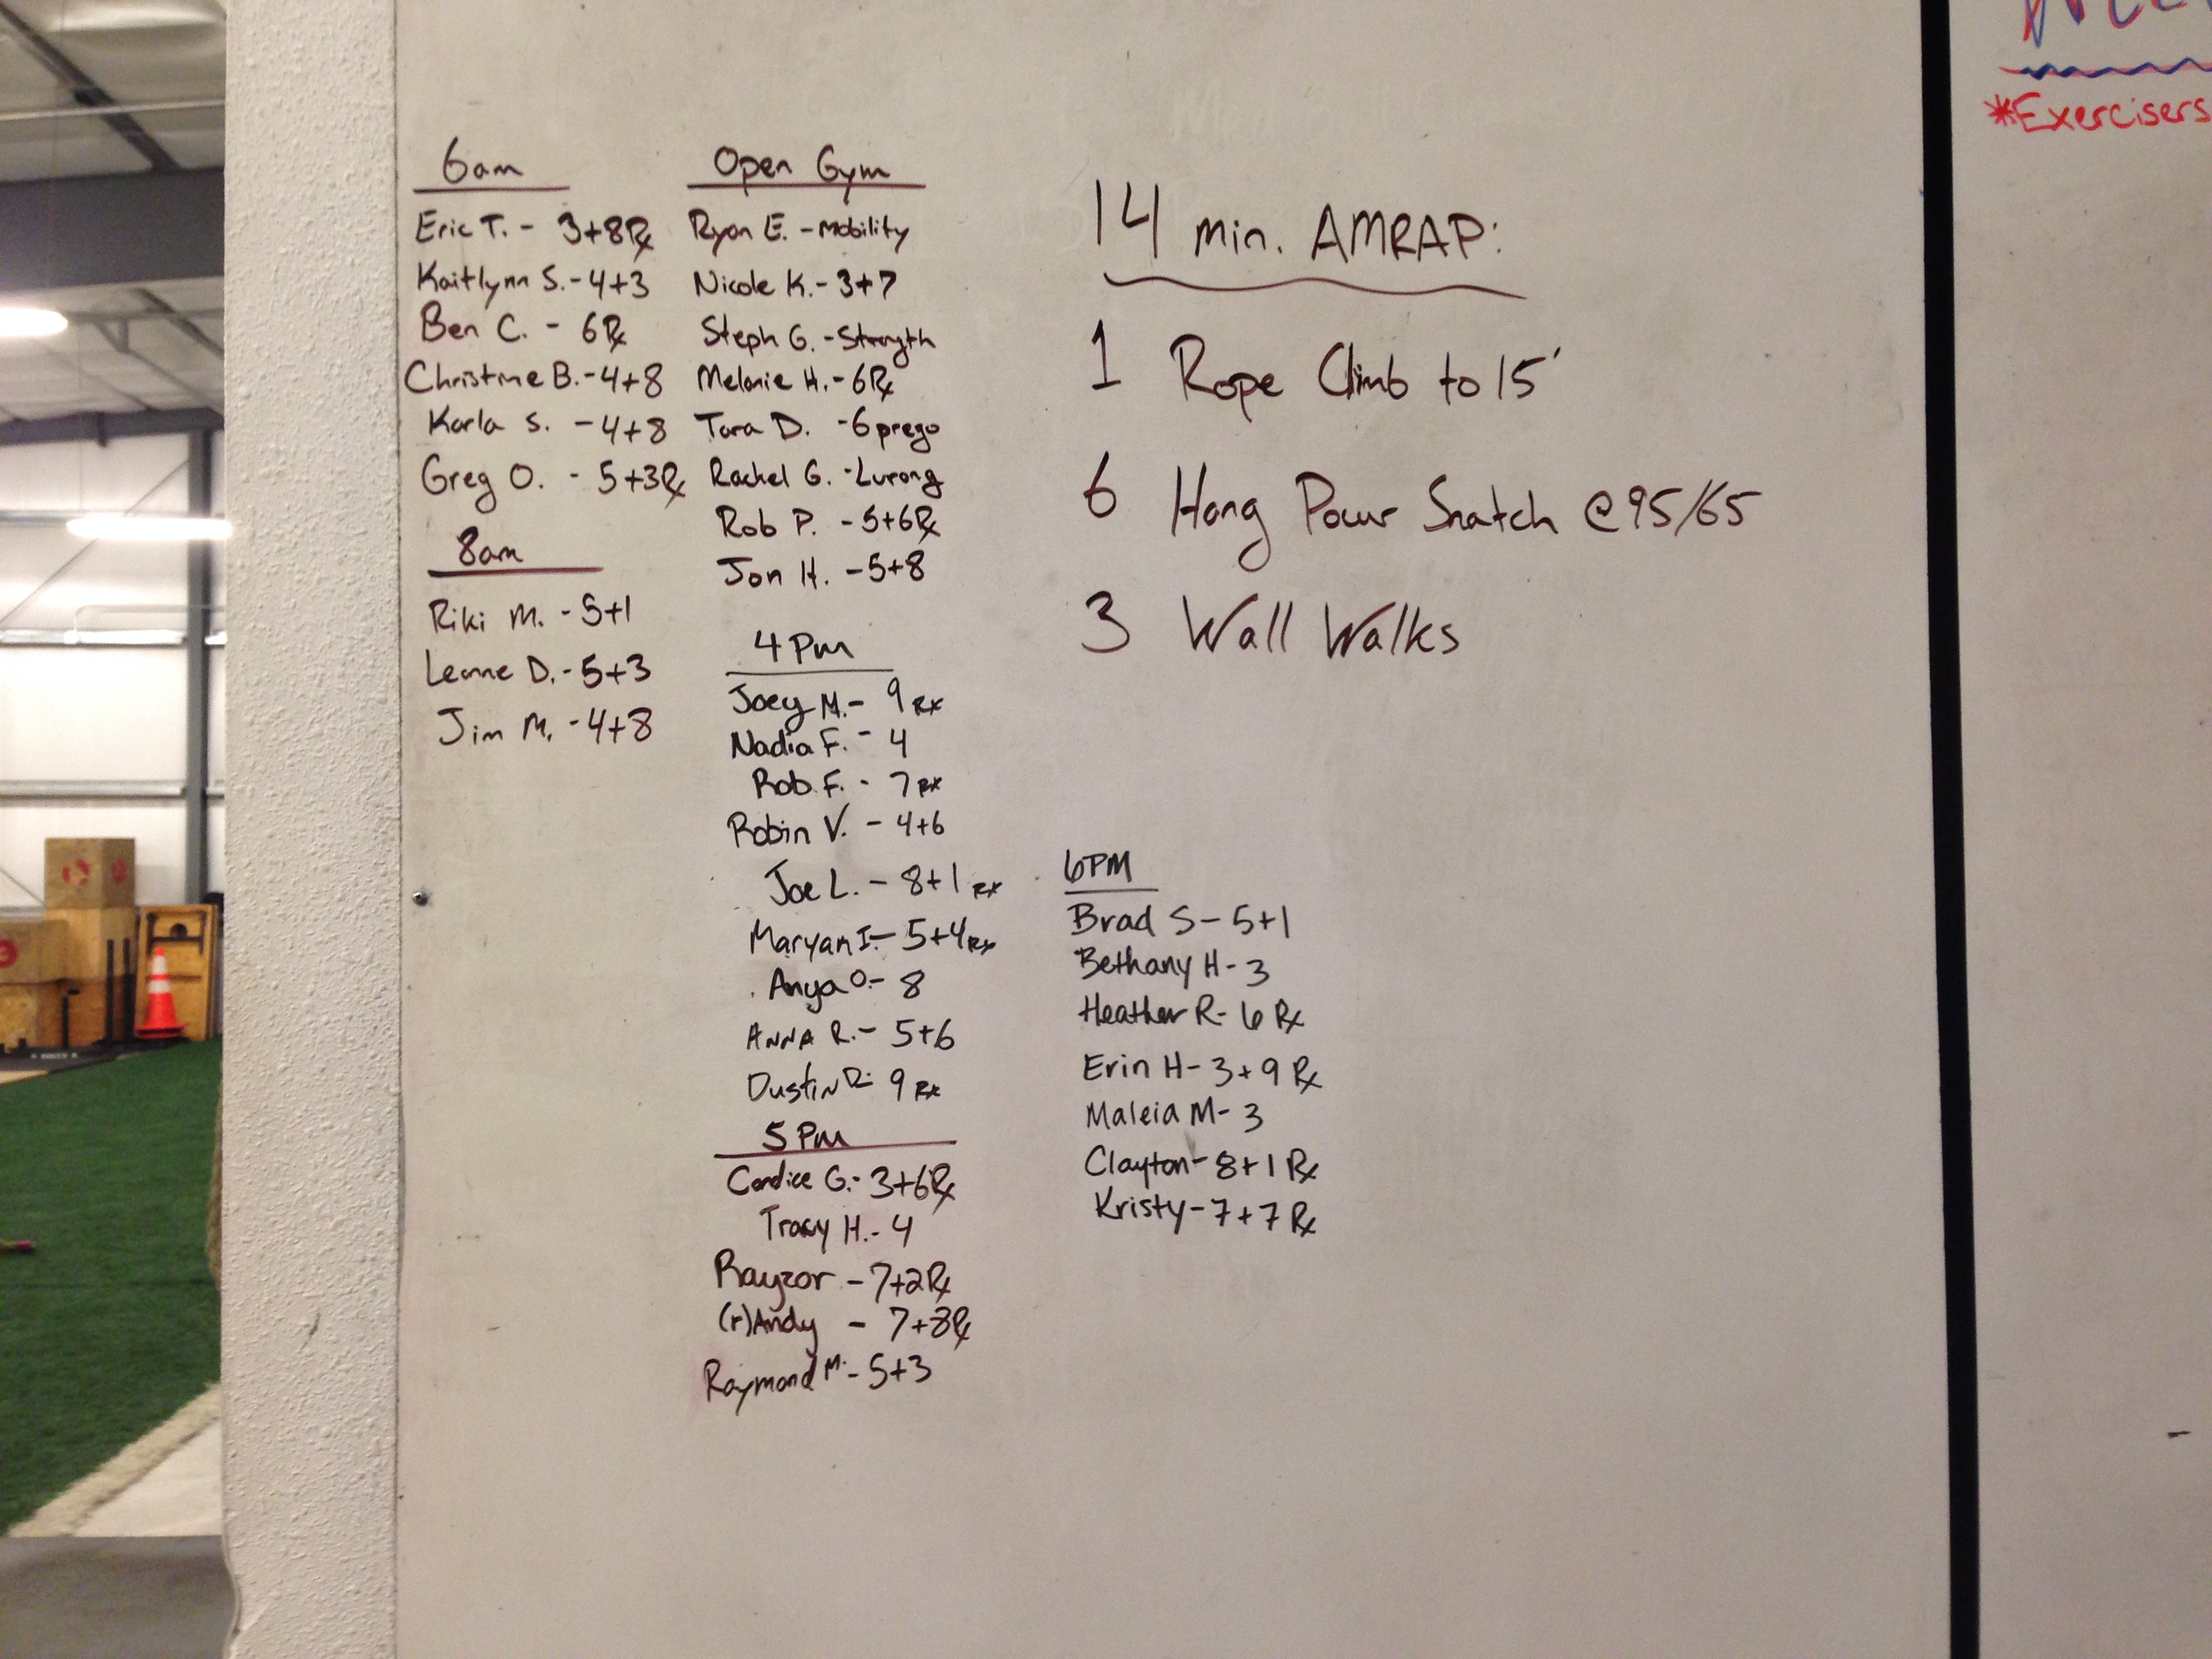 6am
Eric T. - 3+8Rx
Kaitlynn S. - 4+3
Ben C. - 6Rx
Christine B. - 4+8
Karla S. - 4+8
Greg O. - 5+3Rx
8am
Riki M. - 5+1
Leanne D. - 5+3
Jim M. - 4+8
Open Gym
Ryan E. - Mobility
Nicole K. - 3+7
Steph G. - Strength
Melanie H. - 6Rx
Tara D. - 6 prego
Rachel G. - Lurong
Rob P. - 5+6Rx
Jon H. - 5+8
4pm
Joey M. - 9 Rx
Nadia F. - 4
Rob F. - 7 Rx
Robin V. - 4+6
Joe L. - 8+1 Rx
Maryan I. - 5+4 Rx
Anya O. - 8
ANNA R. - 5+6
Dustin R. 9 Rx
5pm
Candice G. - 3+6Rx
Tracy H. - 4
Rayzor - 7+2Rx
(r)Andy - 7+8Rx
Raymond M. - 5+3
14 min. AMRAP:
1 Rope Climb to 15'
6 Hang Power Snatch @95/65
3 Wall Walks
6PM
Brad S - 5+1
Bethany H - 3
Heather R - 6 Rx
Erin H - 3+9 Rx
Maleia M - 3
Clayton - 8+1 Rx
Kristy - 7+7 Rx
*Exercisers